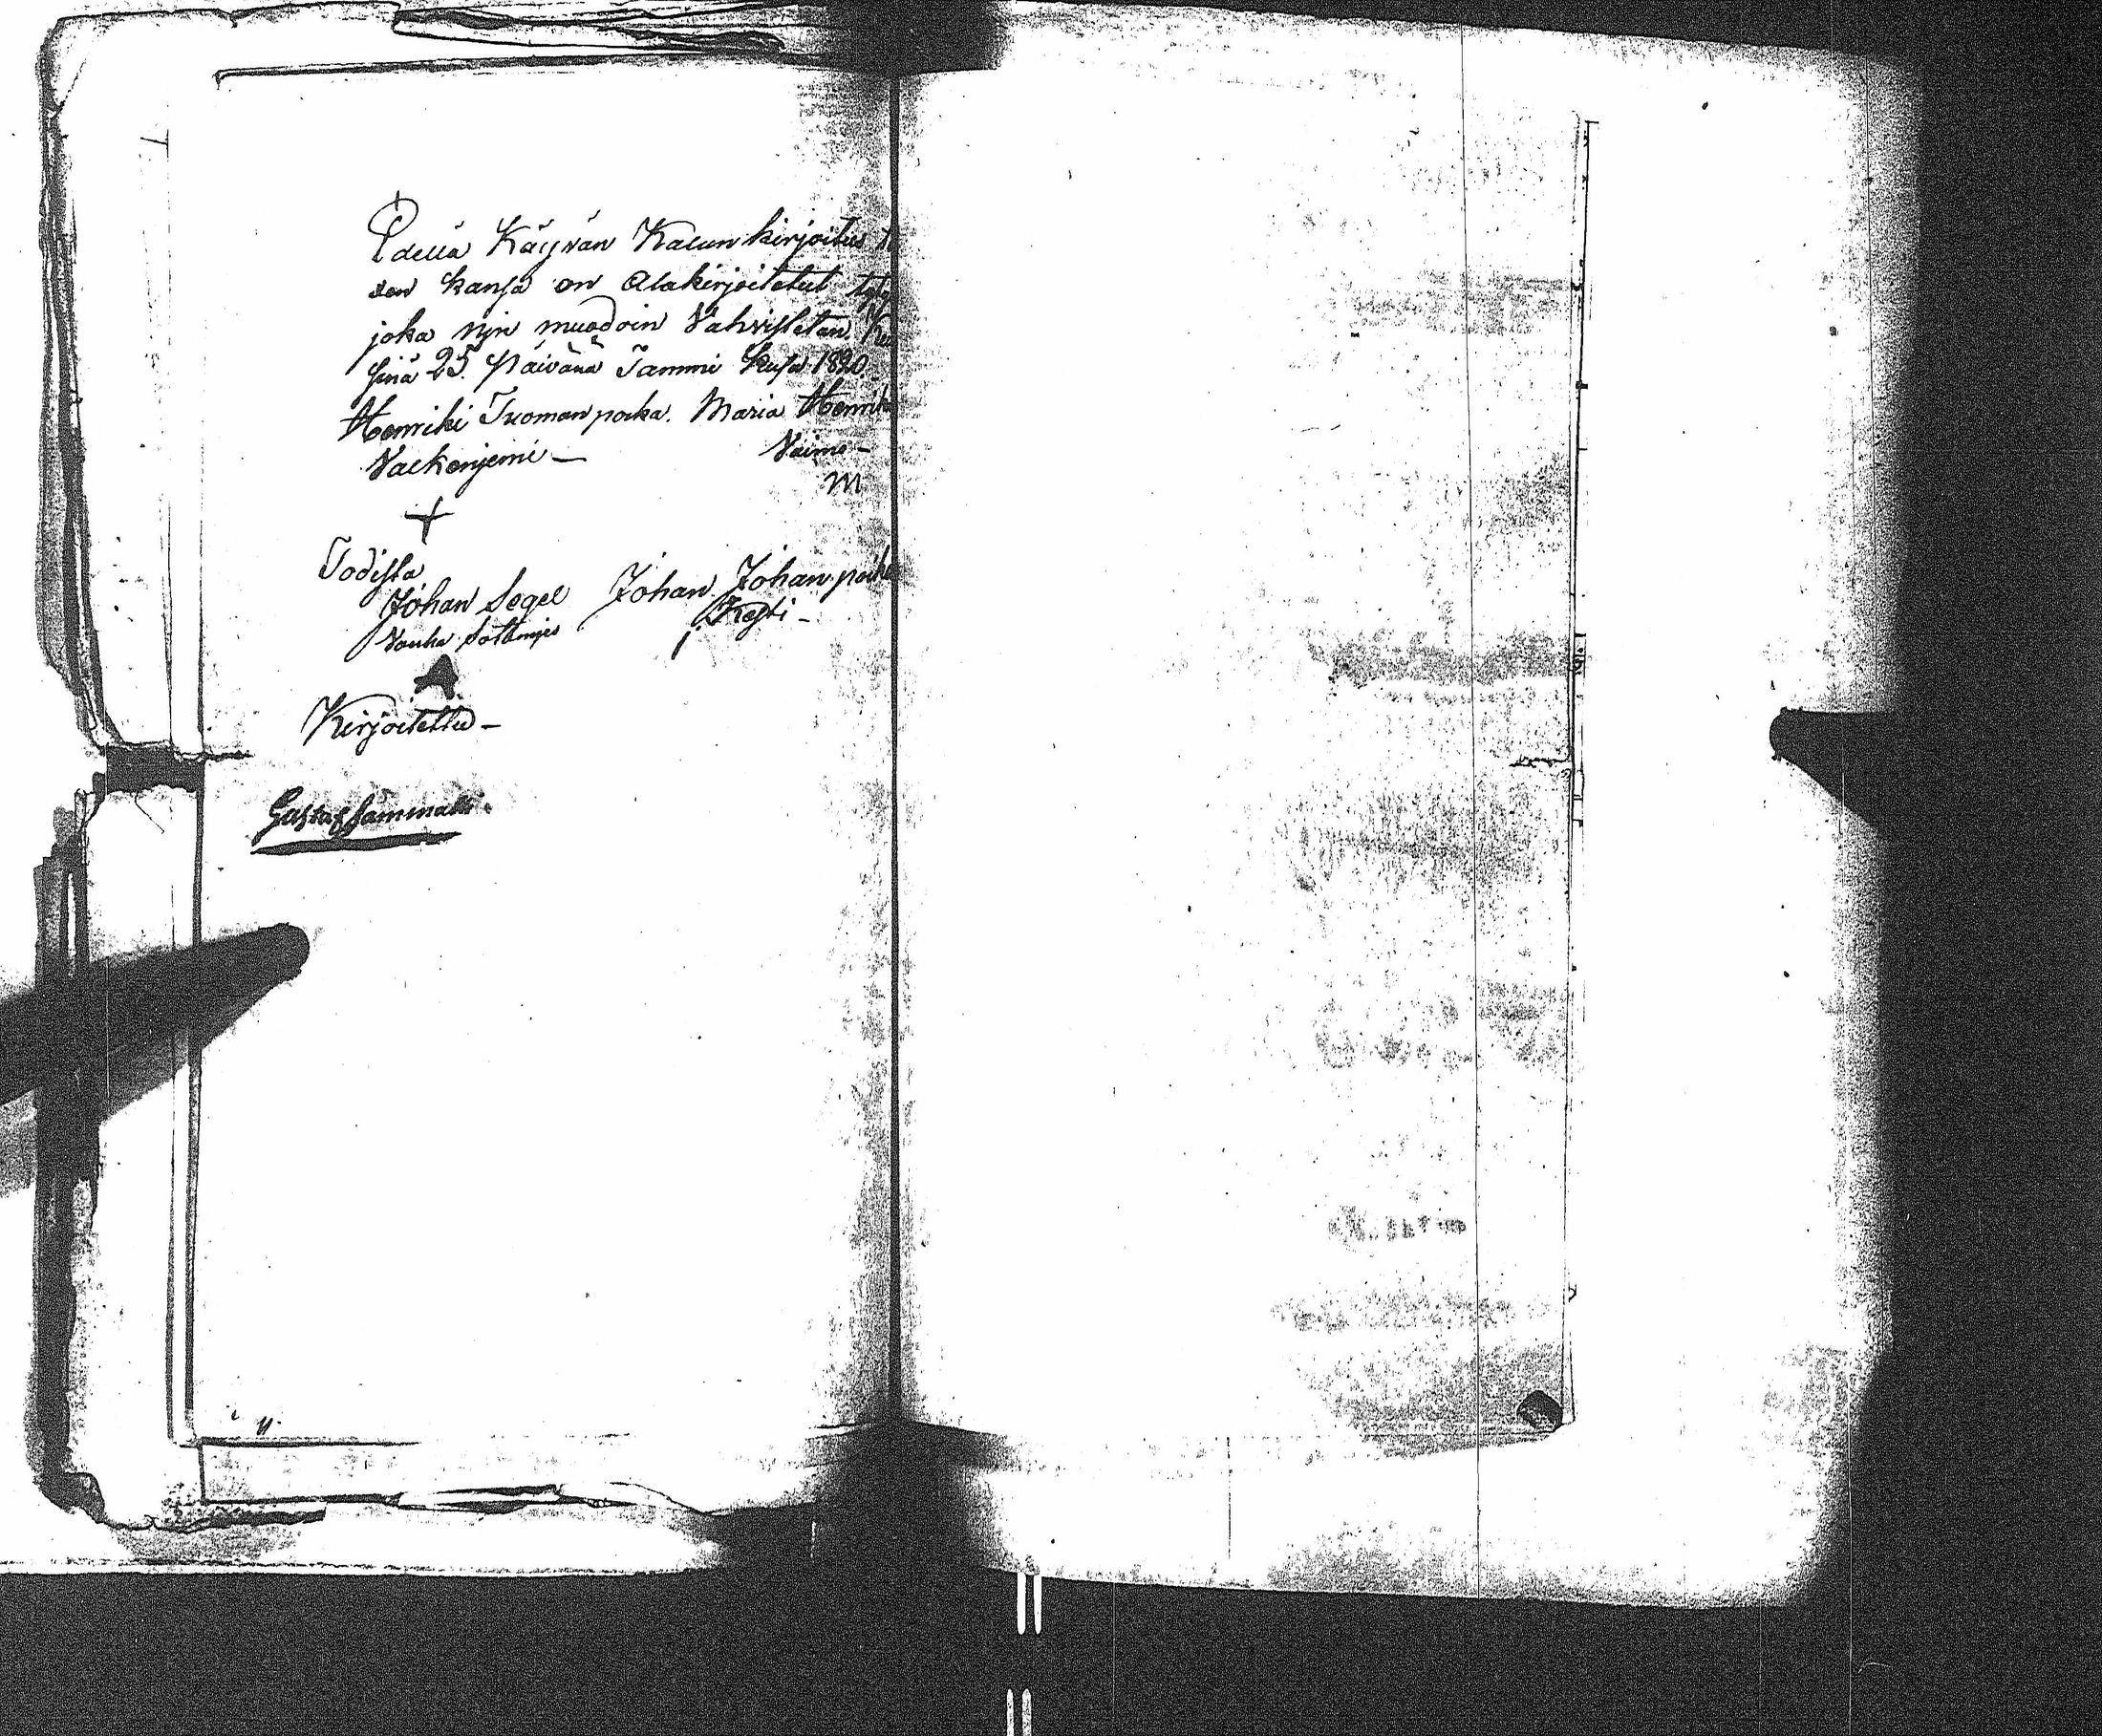 Edellä Käÿvän Kalun kirjoitus
den kansa on Alakirjoitetut
joka nijn muodoin Vahvistetan.
sinä 25. Päivänä Tammi Kusa 1820.
Henriki Tuoman poika. Maria Henriki
Valkenjemi — Vaimo —
M
+
Todista
Johan Segel Johan Johan poika
Vanha Sotamjes Kesti —
A
Kirjoitettu —
Gustaf Sammatti